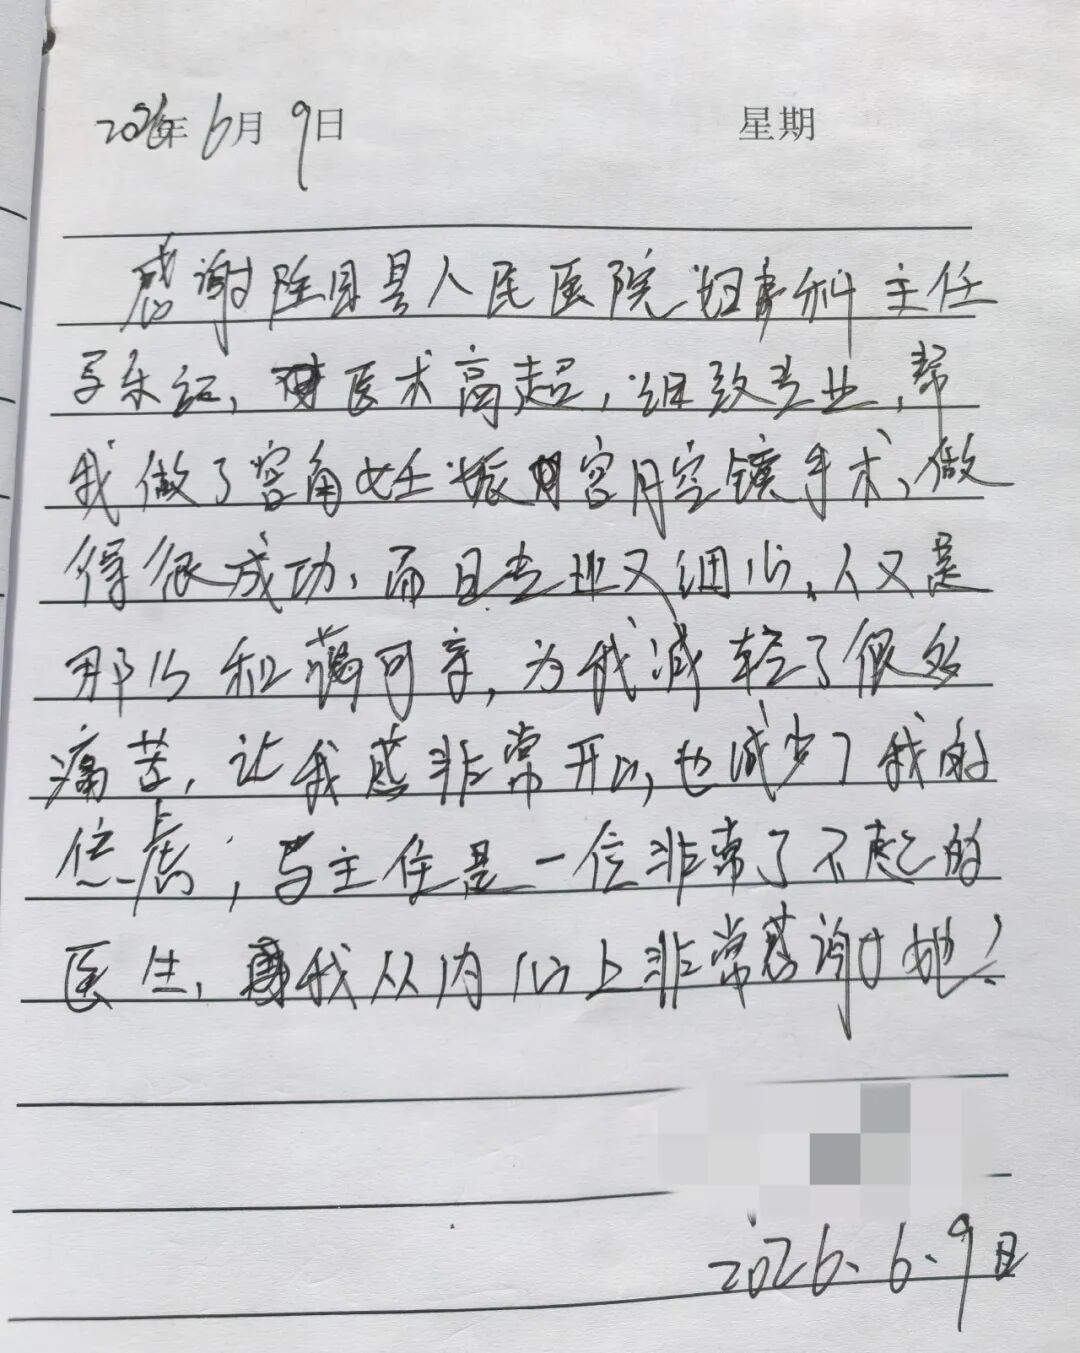 2026年 6月 9日 星期
感谢隆回县人民医院妇产科主任
马乐江，医术高超，细致专业，帮
我做了宫角妊娠宫腔镜手术，做
得很成功，而且专业又细心，人又是
那么和蔼可亲，为我减轻了很多
痛苦，让我感非常开心，也减少了我的
焦虑；马主任是一位非常了不起的
医生，我从内心上非常感谢她！
2026.6.9日